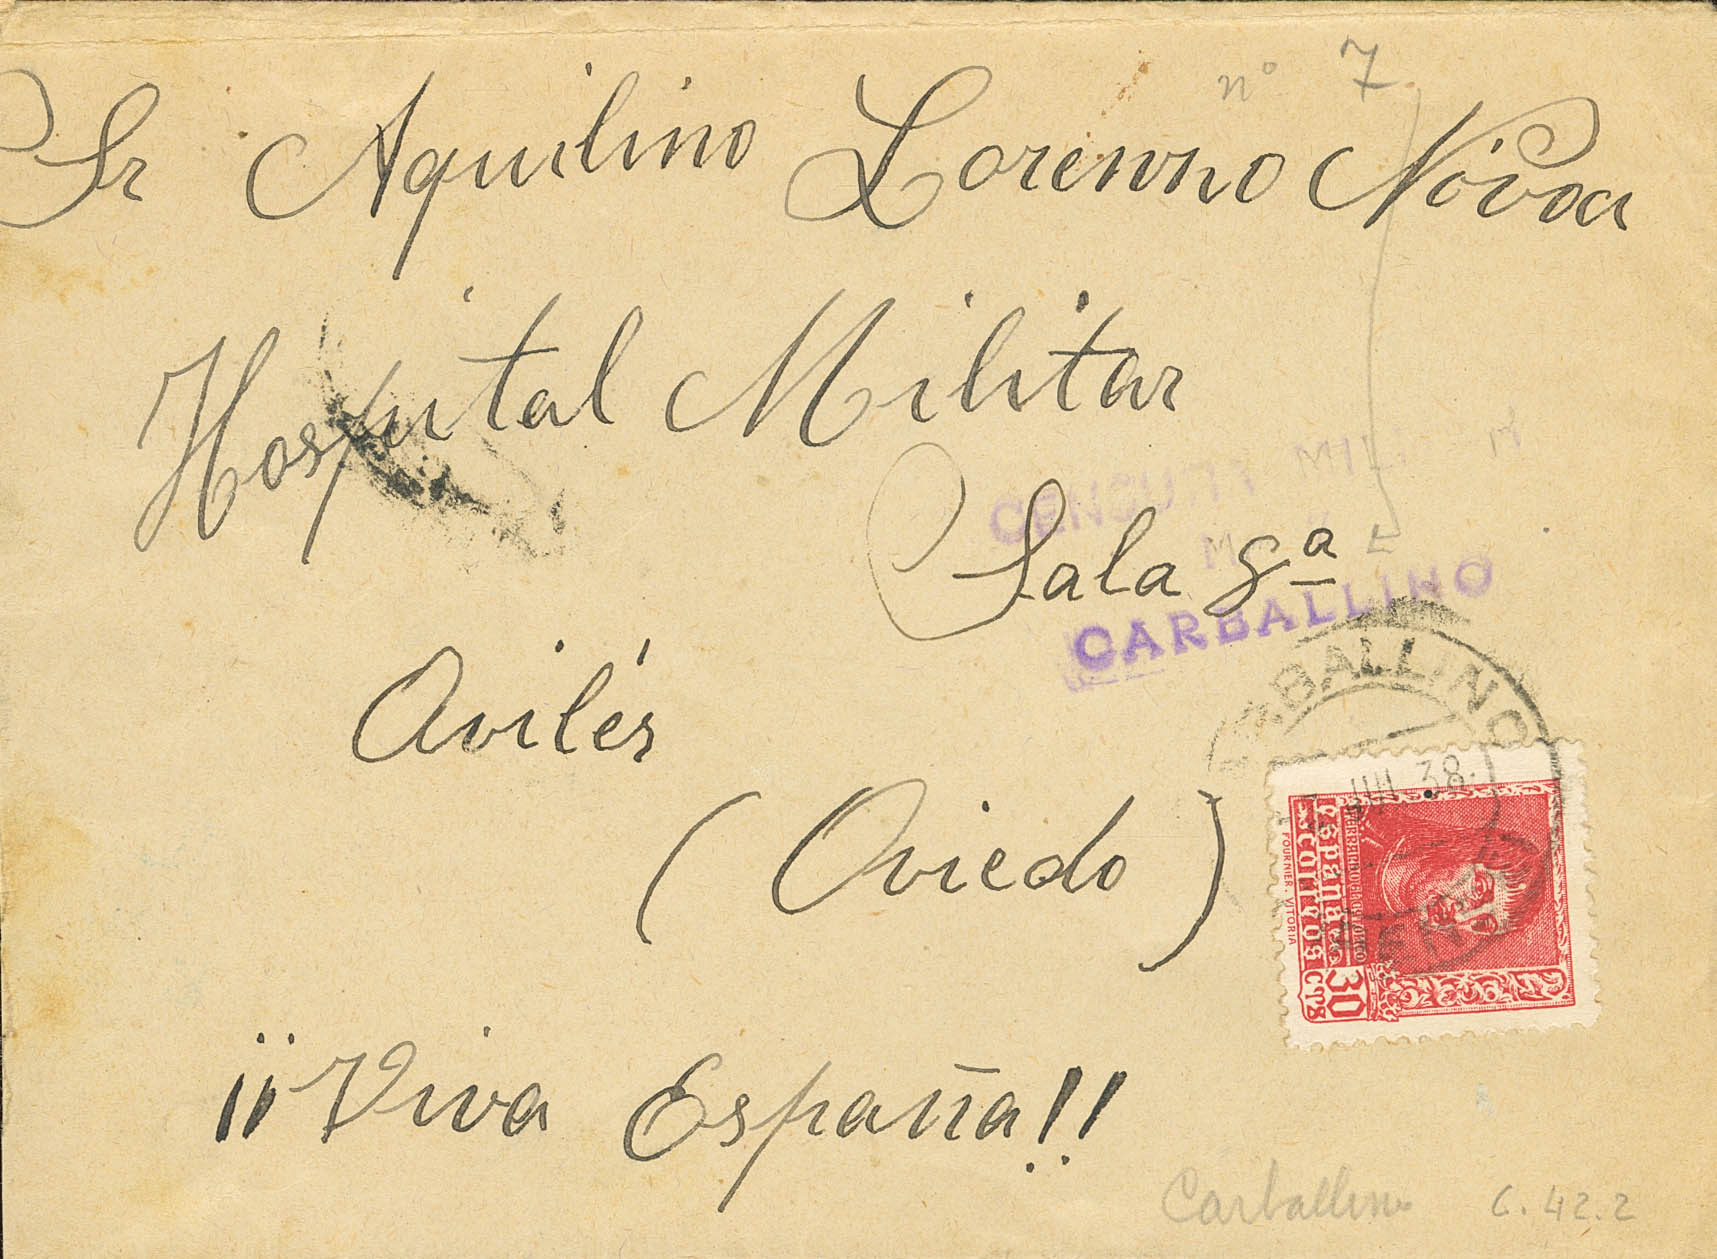 nº 7
Sr Aquilino Lorenno Novoa
Hospital Militar
CENSURA MILITAR
Sala 8ª
CARBALLINO
Avilés
CARBALLINO
JUN 38.
(Oviedo)
España
Correos
30 CTS
FERNANDO EL CATOLICO
FOURNIER. VITORIA
¡¡Viva España!!
Carballino 6.42.2